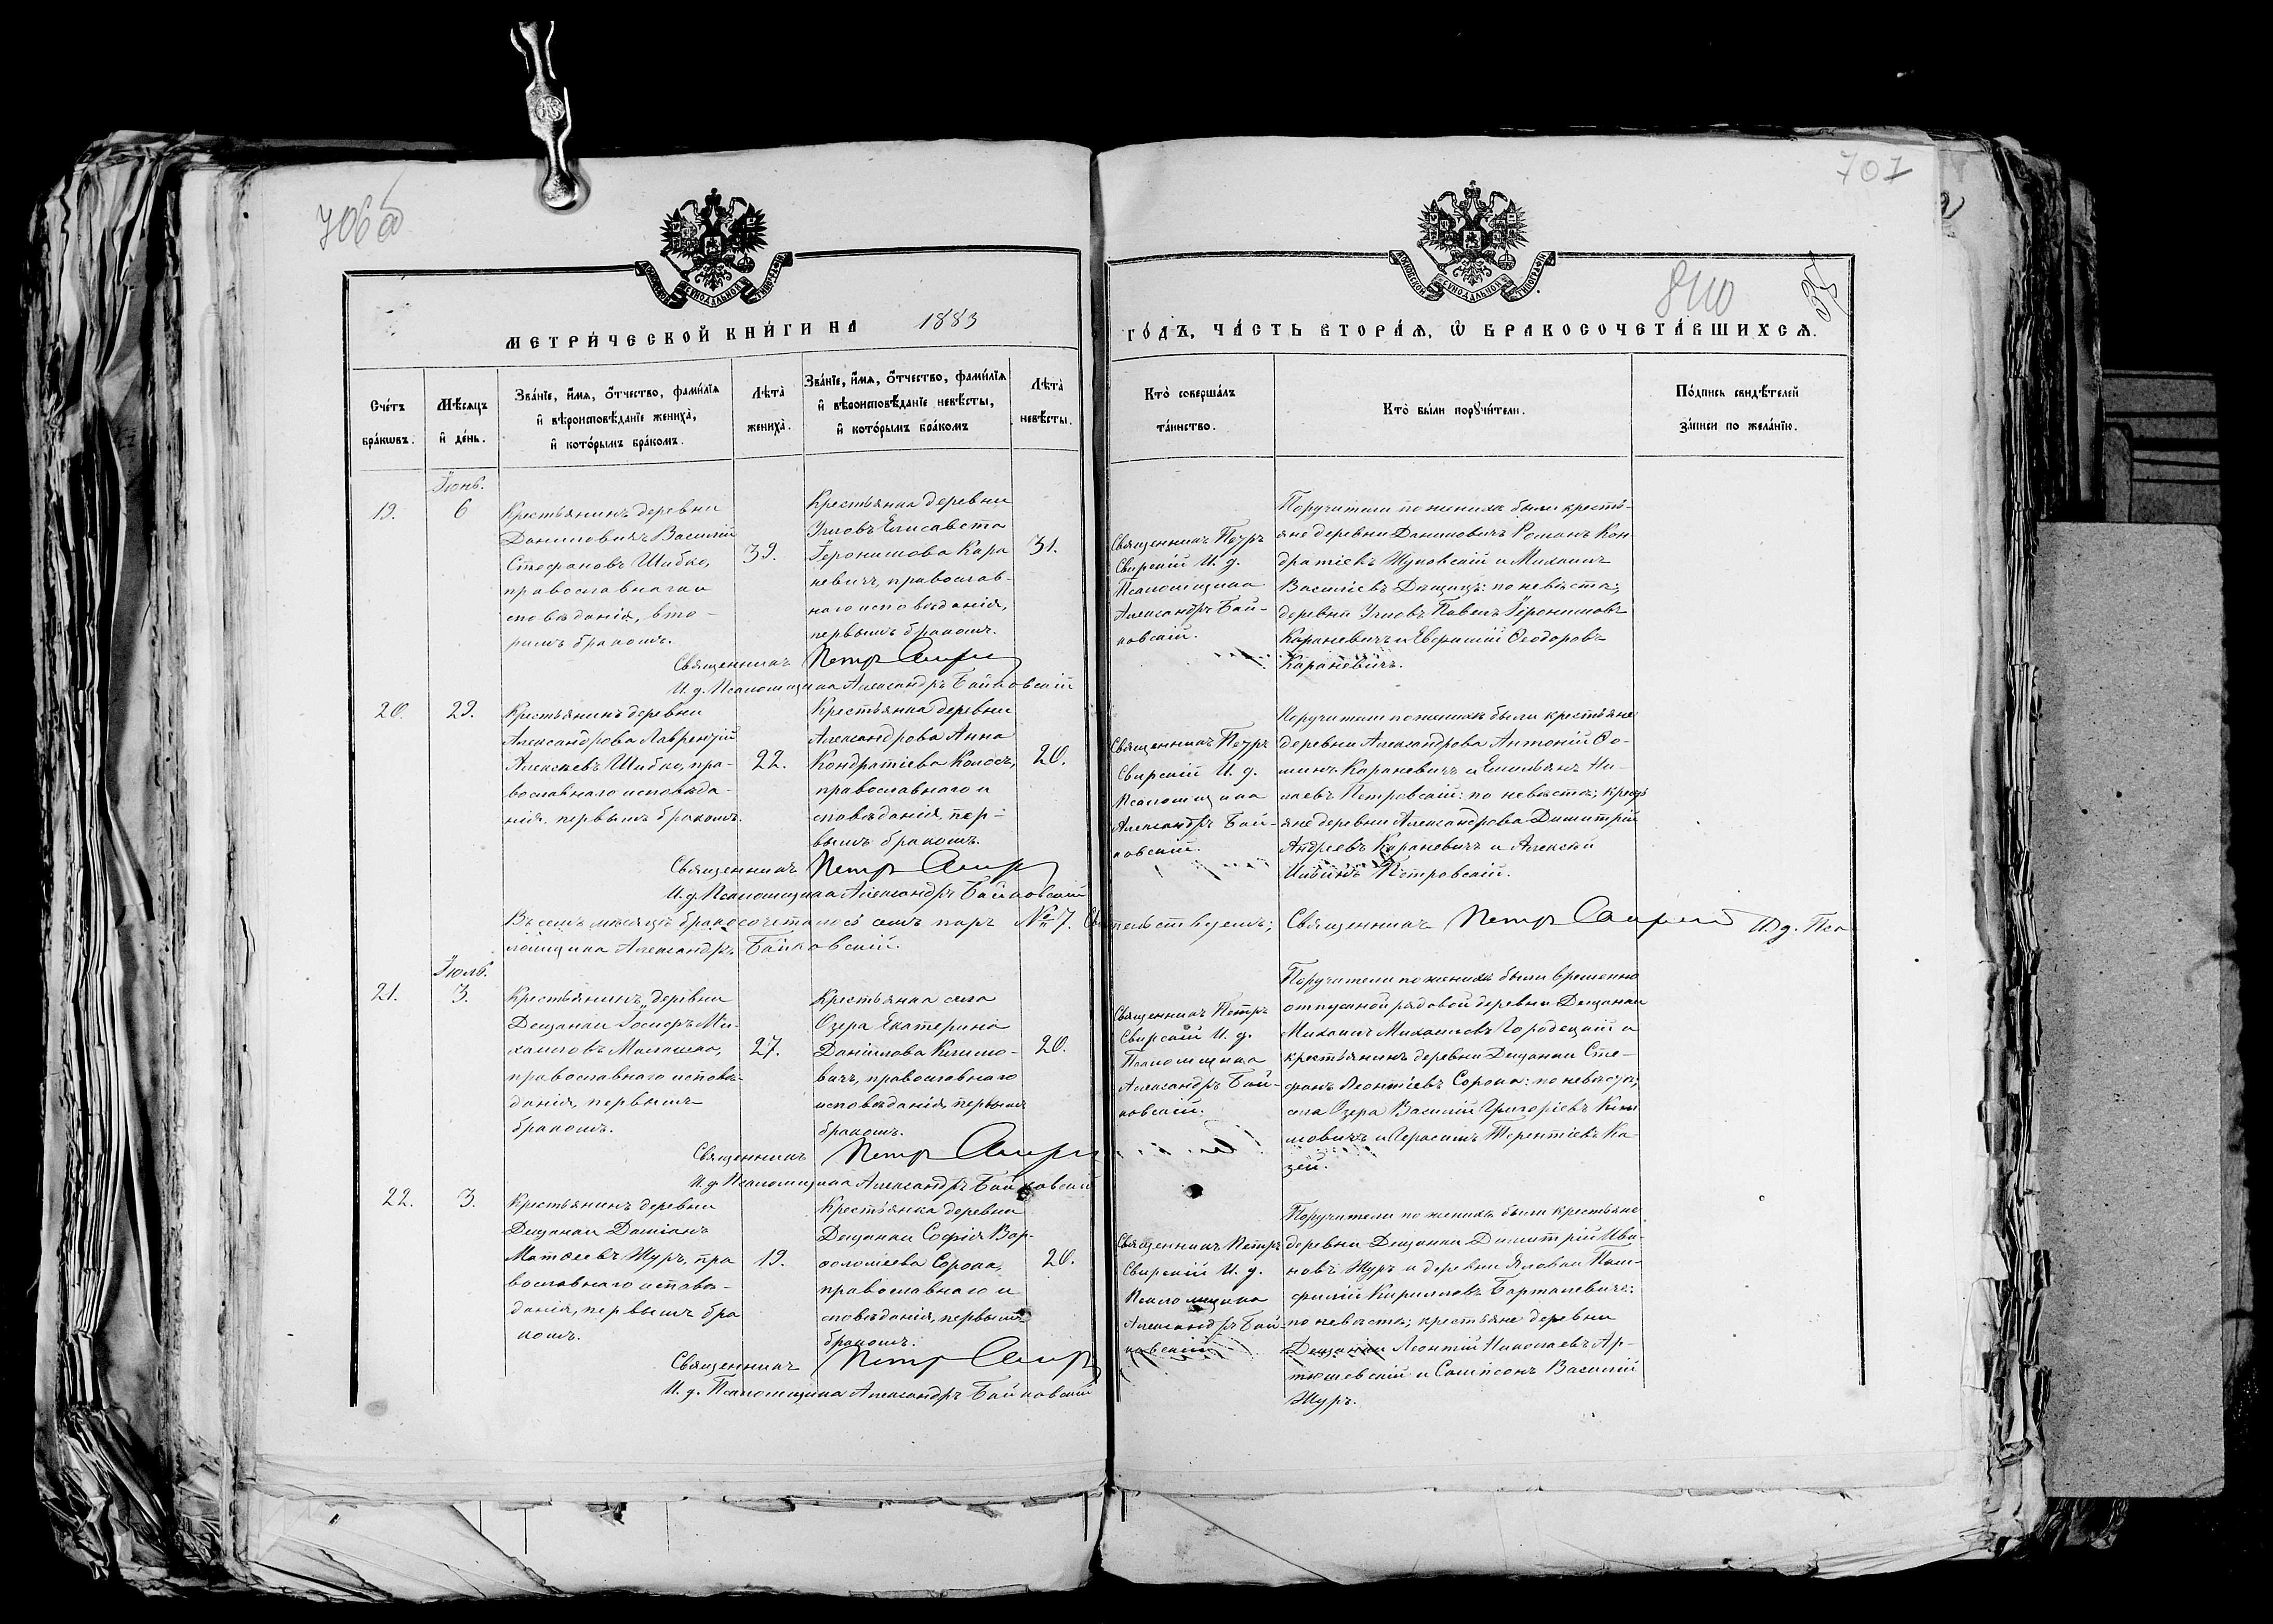 706об
701
840
МЕТРИ́ЧЕСКОЙ КНИ́ГИ НА 1883
ГО́ДЪ, ЧА́СТЬ ВТОРА́Я, Ѡ БРАКОСОЧЕТА́ВШИХСЯ.
Сче́тъ бра́ковъ.
Мѣ́сяцъ и де́нь.
Зва́нїе, и́мя, о́тчество, фами́лїя
и вѣроисповѣ́данїе жениха̀,
и кото́рымъ бра́комъ.
Лѣта̀ жениха̀.
Зва́нїе, и́мя, о́тчество, фами́лїя
и вѣроисповѣ́данїе невѣ́сты,
и кото́рымъ бра́комъ
Лѣта̀ невѣ́сты.
Кто̀ соверша́лъ
та́инство.
Кто̀ бы́ли поручи́тели.
По́дпись свидѣ́телей
за́писи по жела́нїю.
Іюнь.
19.
6
Крестьянинъ деревни
Даниловичъ Василій
Стефановъ Шибко,
православнаго и
сповѣданія, вто-
рымъ бракомъ.
39.
Крестьянка деревни
Угловъ Елисавета
Іеронимова Кара
невичъ, православ-
наго исповѣданія,
первымъ бракомъ.
31.
Священникъ Петръ
Свирскій И. д.
Псаломщика
Александръ Бай-
ковскій.
Поручители по женихѣ были крестья-
яне деревни Даниловичъ Романъ Кон
дратіевъ Жуковскій и Михаилъ
Василіевъ Дещицъ: по невѣстѣ;
деревни Угловъ Павелъ Іеронимовъ
Караневичъ и Евфимій Ѳеодоровъ
Караневичъ.
Священникъ Петръ Свирскій
И. д. Псаломщика Александръ Байковскій
20.
29.
Крестьянинъ деревни
Александрова Лаврентій
Алексѣевъ Шибко, пра-
вославнаго исповѣда-
нія, первымъ бракомъ.
22.
Крестьянка деревни
Александрова Анна
Кондратіева Колосъ,
православнаго и
сповѣданія, пер-
вымъ бракомъ.
20.
Священникъ Петръ
Свирскій И. д.
Псаломщика
Александръ Бай-
ковскій.
Поручители по женихѣ были крестьяне
деревни Александрова Антоній Ѳо-
минъ Караневичъ и Емельянъ Ни-
лаевъ Петровскій: по невѣстѣ; кресть
яне деревни Александрова Димитрій
Андреевъ Караневичъ и Алексѣй
Петровскій.
Священникъ Петръ Свирскій
И. д. Псаломщика Александръ Байковскій
Въ семъ мѣсяцѣ бракосочеталось семь паръ № 7. Свидѣтельствуемъ; Священникъ Петръ Свирскій И. д. Пса
ломщика Александръ Байковскій.
Іюль.
21.
3.
Крестьянинъ деревни
Дещанки Іосифъ Ми-
хаиловъ Малашко,
православнаго исповѣ-
данія, первымъ
бракомъ.
27.
Крестьянка села
Озера Екатерина
Даніилова Климо-
вичъ, православнаго
исповѣданія, первымъ
бракомъ.
20.
Священникъ Петръ
Свирскій И. д.
Псаломщика
Александръ Бай-
ковскій.
Поручители по женихѣ были временно
отпускной рядовой деревни Дещанки
Михаилъ Михаиловъ Городецкій и
крестьянинъ деревни Дещанки Сте-
фанъ Леонтіевъ Сорока: по невѣстѣ;
села Озера Василій Григоріевъ Кли
мовичъ и Герасимъ Терентіевъ Ка-
зей.
Священникъ Петръ Свирскій
И. д. Псаломщика Александръ Байковскій
22.
3.
Крестьянинъ деревни
Дещанки Даміанъ
Матѳеевъ Журъ, пра
вославнаго исповѣ-
данія, первымъ бра
комъ.
19.
Крестьянка деревни
Дещанки Софія Вар-
ѳоломеева Сорока,
православнаго и
сповѣданія, первымъ
бракомъ.
20.
Священникъ Петръ
Свирскій И. д.
Псаломщика
Александръ Бай-
ковскій
Поручители по женихѣ были крестьяне
деревни Дещанки Димитрій Ива-
новъ Журъ и деревни Яловки Пам-
филій Кирилловъ Барташевичъ:
по невѣстѣ; крестьяне деревни
Дещанки Леонтій Николаевъ Ар-
тюшевскій и Сампсонъ Василій
Журъ.
Священникъ Петръ Свирскій
И. д. Псаломщика Александръ Байковскій